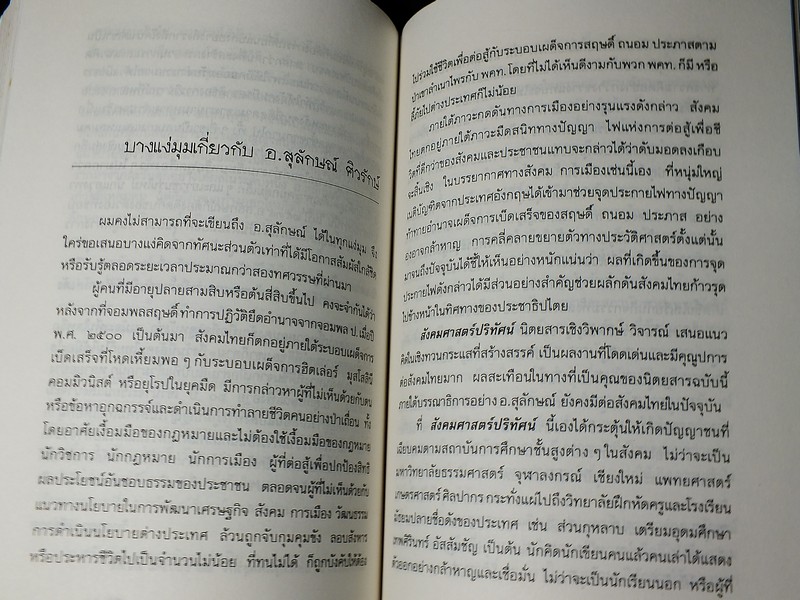 บางแง่มุมเกี่ยวกับ อ.สุลักษณ์ ศิวรักษ์
ผมคงไม่สามารถที่จะเขียนถึง อ.สุลักษณ์ ได้ในทุกแง่มุม จึง
ใคร่ขอเสนอบางแง่คิดจากทัศนะส่วนตัวเท่าที่ได้มีโอกาสสัมผัสใกล้ชิด
หรือรับรู้ตลอดระยะเวลาประมาณกว่าสองทศวรรษที่ผ่านมา
ผู้คนที่มีอายุปลายสามสิบหรือต้นสี่สิบขึ้นไป คงจะจำกันได้ว่า
หลังจากที่จอมพลสฤษดิ์ทำการปฏิวัติยึดอำนาจจากจอมพล ป. เมื่อปี
พ.ศ. ๒๕๐๐ เป็นต้นมา สังคมไทยก็ตกอยู่ภายใต้ระบอบเผด็จการ
เบ็ดเสร็จที่โหดเหี้ยมพอ ๆ กับระบอบเผด็จการฮิตเล่อร์ มุสโสลินี
คอมมิวนิสต์ หรือยุโรปในยุคมืด มีการกล่าวหาผู้ที่ไม่เห็นด้วยกับตน
หรือข้อหาอุกฉกรรจ์และดำเนินการทำลายชีวิตคนอย่างป่าเถื่อน ทั้ง
โดยอาศัยเงื้อมมือของกฎหมายและไม่ต้องใช้เงื้อมมือของกฎหมาย
นักวิชการ นักกฎหมาย นักการเมือง ผู้ที่ต่อสู้เพื่อปกป้องสิทธิ
ผลประโยชน์อันชอบธรรมของประชาชน ตลอดจนผู้ที่ไม่เห็นด้วยกับ
แนวทางนโยบายในการพัฒนาเศรษฐกิจ สังคม การเมือง วัฒนธรรม
การดำเนินนโยบายต่างประเทศ ล้วนถูกจับกุมคุมขัง ลอบสังหาร
หรือประหารชีวิตไปเป็นจำนวนไม่น้อย ที่ทนไม่ได้ ก็ถูกบังคับให้ต้อง
ไปร่วมใช้ชีวิตเพื่อต่อสู้กับระบอบเผด็จการสฤษดิ์ ถนอม ประภาสตาม
ป่าเขาลำเนาไพรกับ พคท. โดยที่ไม่ได้เห็นดีงามกับพวก พคท. ก็มี หรือ
ลี้ภัยไปต่างประเทศก็ไม่น้อย
ภายใต้ภาวะกดดันทางการเมืองอย่างรุนแรงดังกล่าว สังคม
ไทยตกอยู่ภายใต้ภาวะมืดสนิททางปัญญา ไฟแห่งการต่อสู้เพื่อชี
วิตที่ดีกว่าของสังคมและประชาชนแทบจะกล่าวได้ว่าดับมอดลงเกือบ
จะสิ้นเชิง ในบรรยากาศทางสังคม การเมืองเช่นนี้เอง ที่หนุ่มใหญ่
เนติบัณฑิตจากประเทศอังกฤษได้เข้ามาช่วยจุดประกายไฟทางปัญญา
ท้าทายอำนาจเผด็จการเบ็ดเสร็จของสฤษดิ์ ถนอม ประภาส อย่าง
องอาจกล้าหาญ การคลี่คลายขยายตัวทางประวัติศาสตร์ตั้งแต่นั้น
มาจนถึงปัจจุบันได้ชี้ให้เห็นอย่างหนักแน่นว่า ผลที่เกิดขึ้นของการจุด
ประกายไฟดังกล่าวได้มีส่วนอย่างสำคัญช่วยผลักดันสังคมไทยก้าวรุด
ไปข้างหน้าในทิศทางของประชาธิปไตย
สังคมศาสตร์ปริทัศน์ นิตยสารเชิงวิพากษ์ วิจารณ์ เสนอแนว
คิดในเชิงทวนกระแสที่สร้างสรรค์ เป็นผลงานที่โดดเด่นและมีคุณูปการ
ต่อสังคมไทยมาก ผลสะเทือนในทางที่เป็นคุณของนิตยสารฉบับนี้
ภายใต้บรรณาธิการอย่าง อ.สุลักษณ์ ยังคงมีต่อสังคมไทยในปัจจุบัน
ที่ สังคมศาสตร์ปริทัศน์ นี้เองได้กระตุ้นให้เกิดปัญญาชนที่
เฉียบคมตามสถาบันการศึกษาชั้นสูงต่าง ๆ ในสังคม ไม่ว่าจะเป็น
มหาวิทยาลัยธรรมศาสตร์ จุฬาลงกรณ์ เชียงใหม่ แพทยศาสตร์
เกษตรศาสตร์ ศิลปากร กระทั่งแผ่ไปถึงวิทยาลัยฝึกหัดครูและโรงเรียน
มัธยมปลายชื่อดังของประเทศ เช่น สวนกุหลาบ เตรียมอุดมศึกษา
เทพศิรินทร์ อัสสัมชัญ เป็นต้น นักคิดนักเขียนคนแล้วคนเล่าได้แสดง
ตัวออกอย่างกล้าหาญและเชื่อมั่น ไม่ว่าจะเป็นนักเรียนนอก หรือผู้ที่